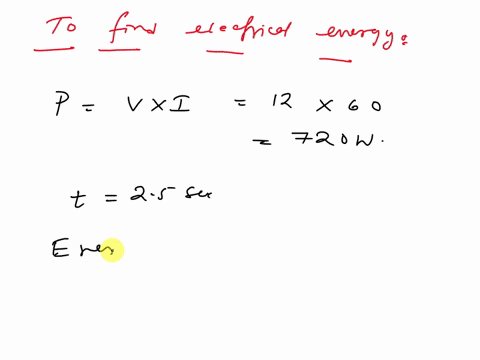 To find electrical energy:
P = V X I = 12 X 60
= 720 W.
t = 2.5 sec
Ener